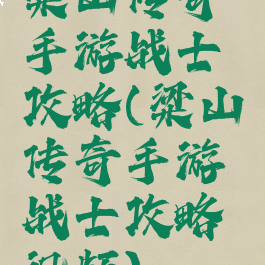 梁山传奇
手游战士
攻略(梁山
传奇手游
战士攻略
视频)